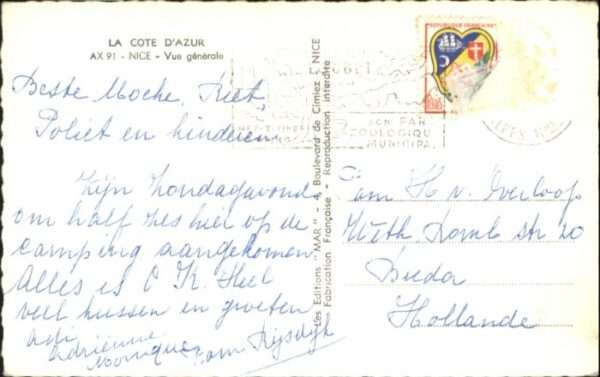 LA COTE D'AZUR
AX 91 - NICE - Vue générale
Beste Moeke, Riet,
Poliet en kinderen
Zijn Zondagavond
om half zes hier op de
camping aangekomen
Alles is O K. Heel
veel kussen en groeten
Adriënne
Tom Rijsdijk
Les Editions "MAR" - 4, Boulevard de Cimiez, NICE
Fabrication Française - Reproduction interdite
REPUBLIQUE FRANÇAISE
SON PARC
ZOOLOGIQUE
MUNICIPAL
Fam H v. Overloop
Str 20
Breda
Hollande